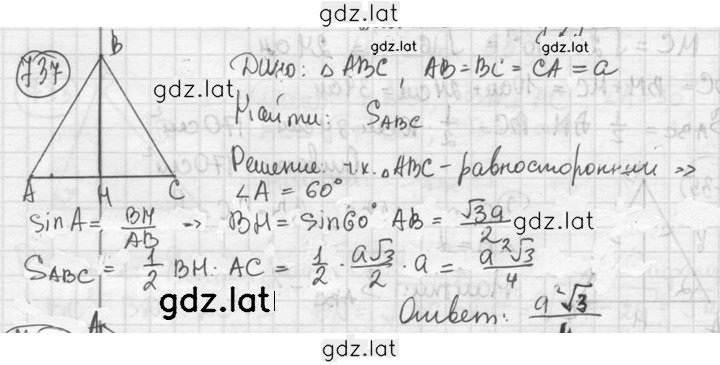 gdz.lat
gdz.lat
737
B
Дано: △ ABC, AB = BC = CA = a
gdz.lat
Найти: S_ABC
Решение: т.к. △ABC – равносторонний ⇒
A M C
∠A = 60°
sin A = BM/AB ⇒ BM = sin60° AB = √3a/2
gdz.lat
S_ABC = 1/2 BM · AC = 1/2 · a√3/2 · a = a²√3/4
gdz.lat
Ответ: a²√3/4
gdz.lat